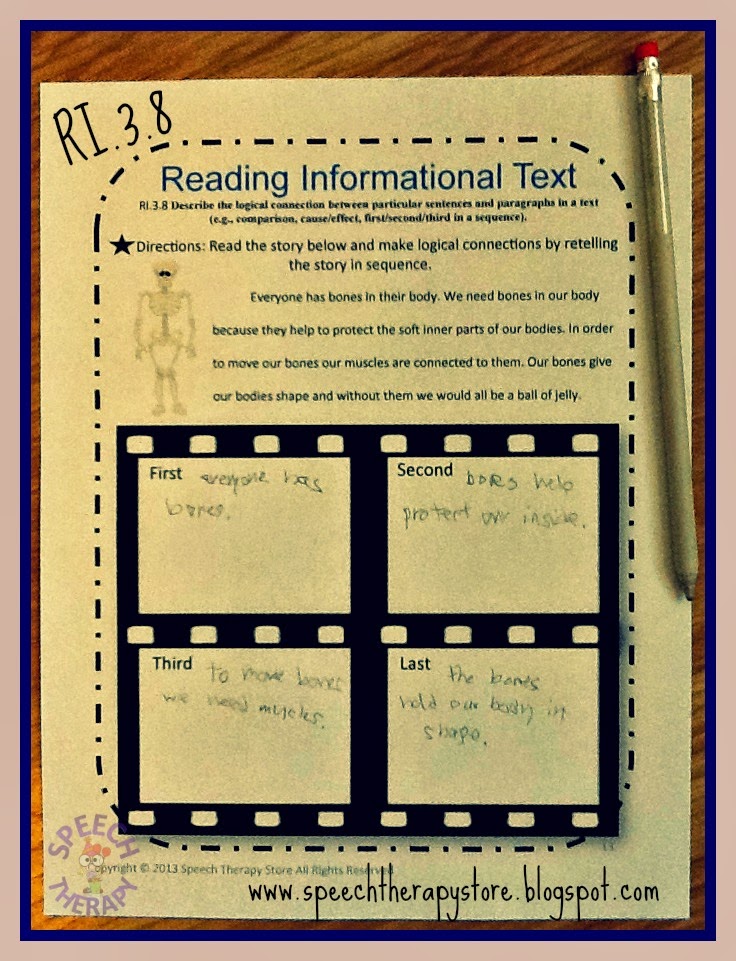 RI.3.8
Reading Informational Text
RI.3.8 Describe the logical connection between particular sentences and paragraphs in a text
(e.g., comparison, cause/effect, first/second/third in a sequence).
★Directions: Read the story below and make logical connections by retelling
the story in sequence.
Everyone has bones in their body. We need bones in our body
because they help to protect the soft inner parts of our bodies. In order
to move our bones our muscles are connected to them. Our bones give
our bodies shape and without them we would all be a ball of jelly.
First everyone has
bones.
Second bones help
protect our inside.
Third to move bones
we need mucles.
Last the bones
hold our body in
shape.
13
SPEECH
THERAPY
Copyright © 2013 Speech Therapy Store All Rights Reserved
www.speechtherapystore.blogspot.com